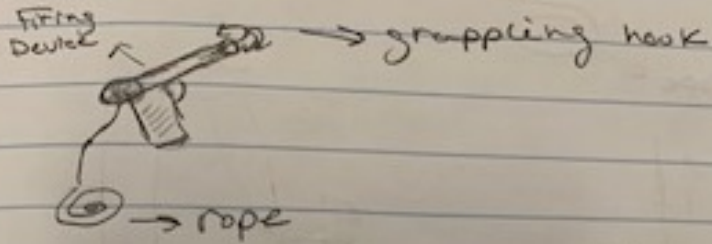 Firing
Device
grappling hook
rope